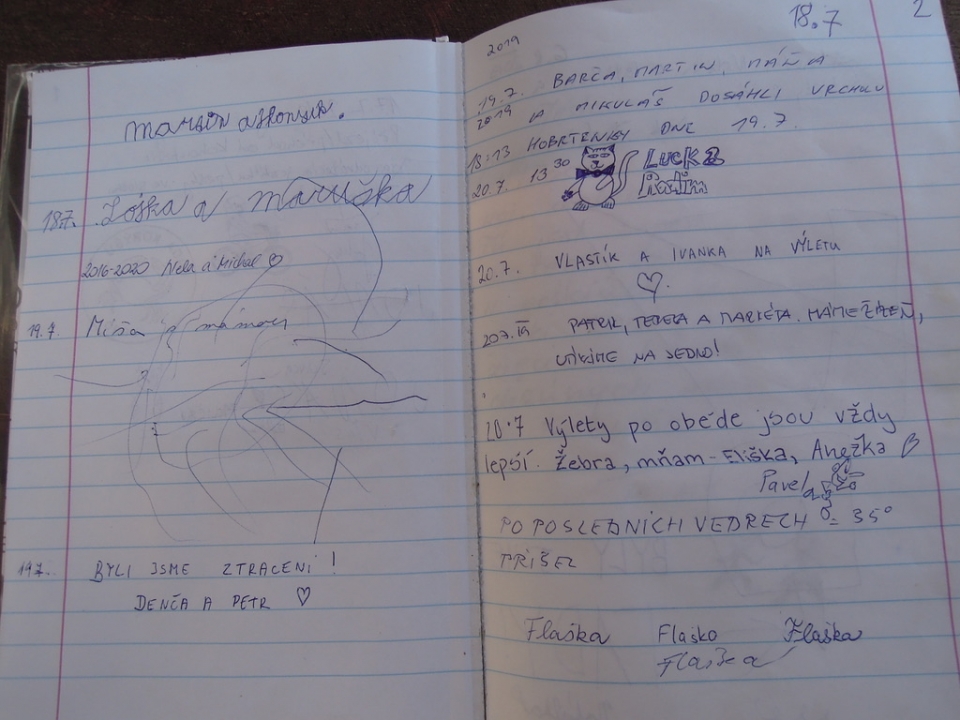 18.7. Lóška a Maruška
2016-2020 Nela a Michal
19.7. Míša a mámou
19.7. BYLI JSME ZTRACENI!
DENČA A PETR
18.7 2
2019
19.7. BARČA, MARTIN, MÁŇA
2019 A MIKULÁŠ DOSÁHLI VRCHOLU
18:13 HOBRTENKY DNE 19.7.
20.7. 13 30 LUCKA
Radim
20.7. VLASTÍK A IVANKA NA VÝLETU
20.7. 19 PATRIK, TEREZA A MARKÉTA. MÁME ŽÍZEŇ,
NA JEDNO!
20.7 Výlety po obědě jsou vždy
lepší. Žebra, mňam - Eliška, Anežka
Pavel
PO POSLEDNÍCH VEDRECH = 35°
PŘIŠEL
Flaška Flaško Flaška
Flaška